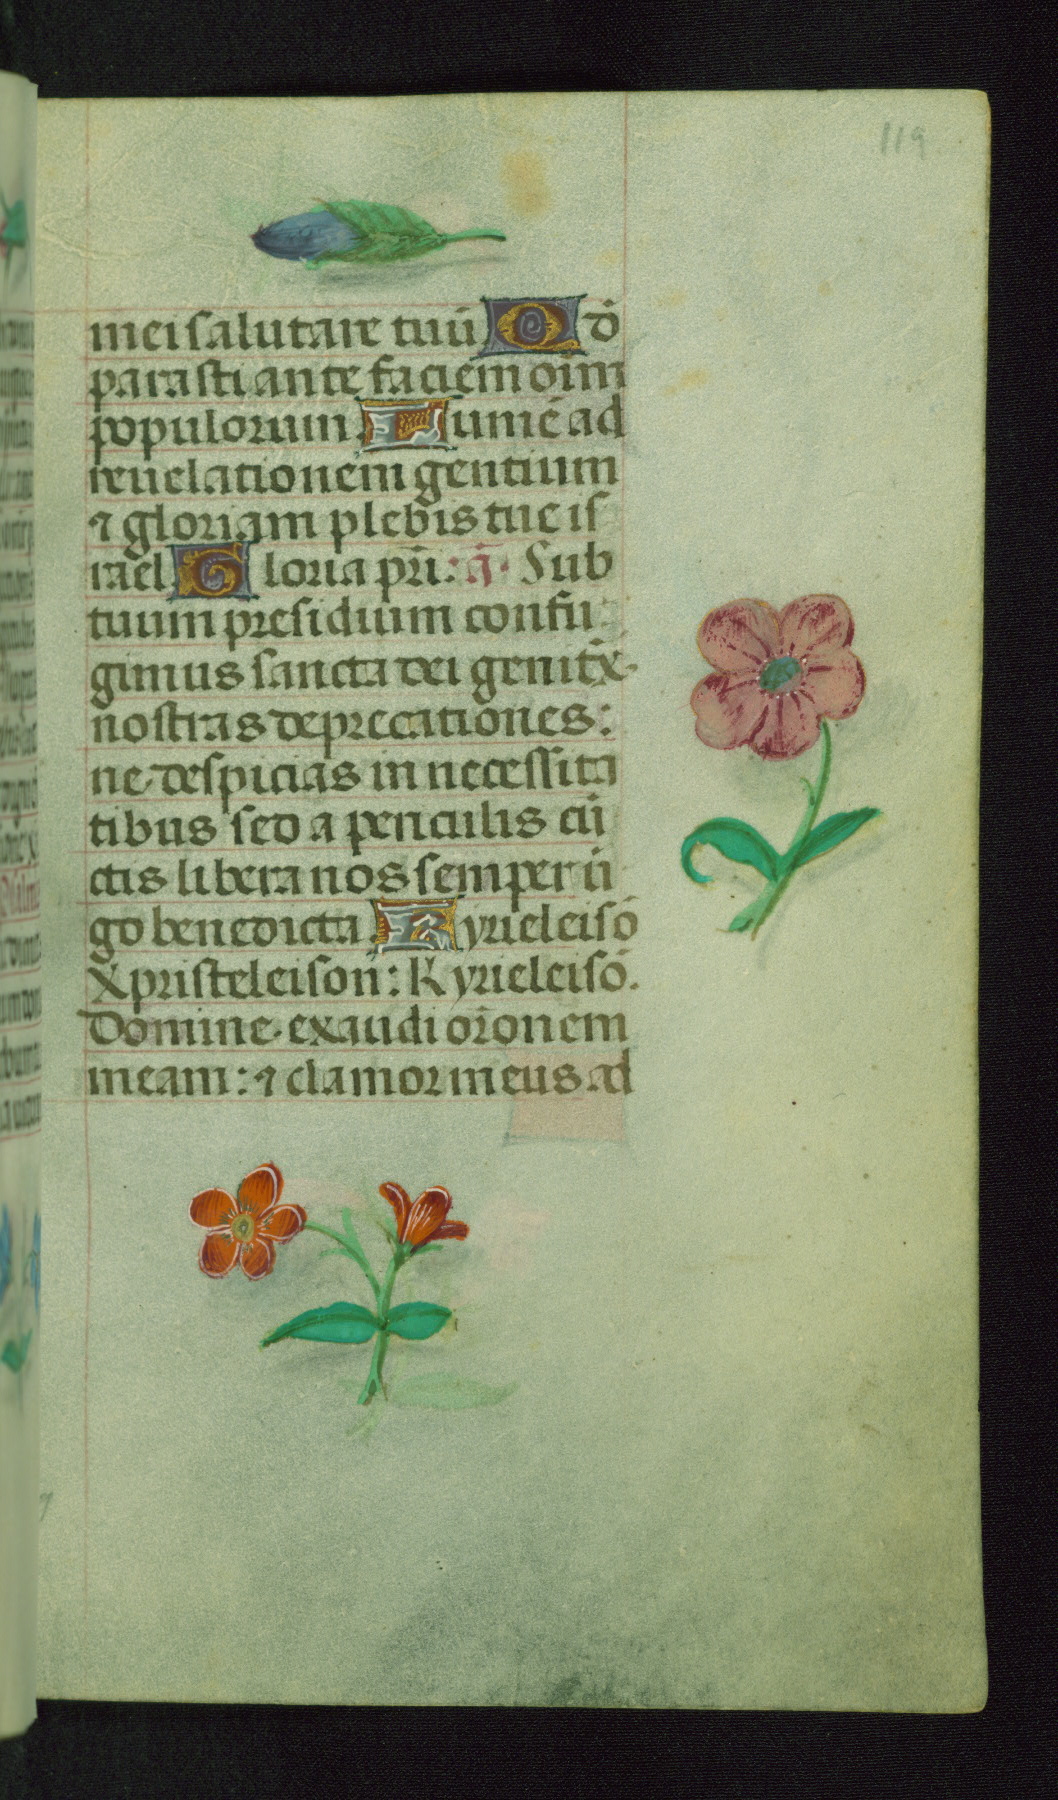 119
mei salutare tuū Q d̄
parasti ante faciem oīm
populorum Lumē ad
reuelationem gentium
⁊ gloriam plebis tue is
rael Gloria pr̄i: a᷃. Sub
tuum presidium confu
gimus sancta dei genit̄x.
nostras deprecationes:
ne despicias in necessita
tibus sed a periculis cū
ctis libera nos semper ū
go benedicta Kyrieleisō
Xpristeleison: Kyrieleisō.
Domine exaudi or̄onem
meam: ⁊ clamor meus ad